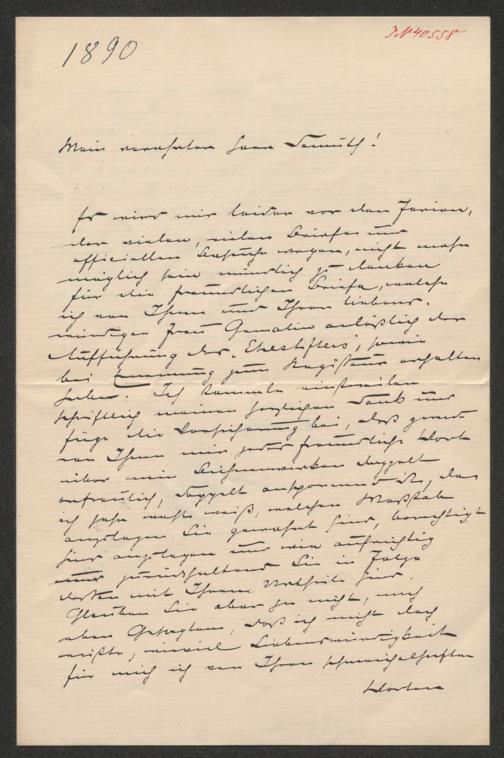 1890
I.N. 40558
Mein verehrter Herr Demuth!
Es wird mir leider vor den Ferien,
der vielen, vielen Briefe und
officiellen Besuche wegen, nicht mehr
möglich sein mündlich zu danken
für die freundlichen Briefe, welche
ich von Ihnen und Ihrer liebens-
würdigen Frau Gemalin anläßlich der
Aufführung des "Ehestifters", sowie
bei Ernennung zum Regisseur erhalten
habe. Ich stammle einstweilen
schriftlich meinen herzlichen Dank und
füge die Versicherung bei, daß gerade
von Ihnen mir jedes freundliche Wort
über mein Bühnenwirken doppelt
erfreulich, doppelt anspornend ist, da
ich sehr wohl weiß, welchen Maßstab
anzulegen Sie gewohnt sind, berechtigt
sind anzulegen und wie aufrichtig
und zurückhaltend Sie in Folge
dessen mit Ihrem Urtheile sind.
Glauben Sie aber ja nicht, nach
eben Gesagtem, daß ich nicht doch
wüßte, wieviel Liebenswürdigkeit
für mich ich von Ihren schmeichelhaften
Worten